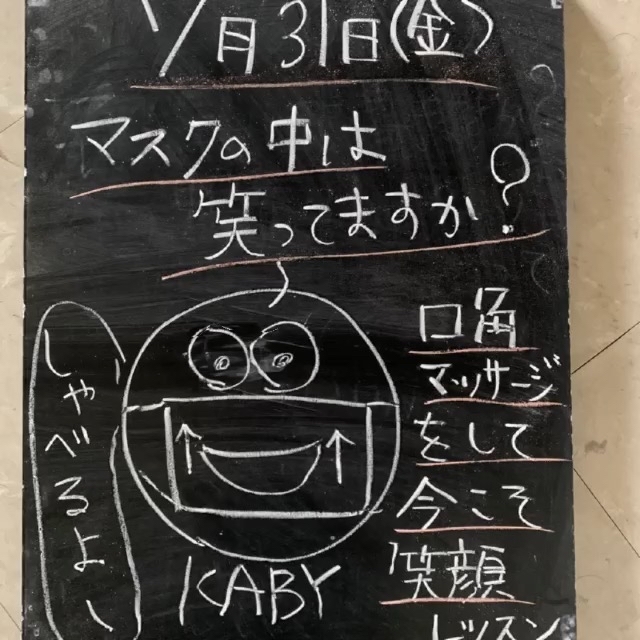 7月31日(金)
マスクの中は
笑ってますか?
口角
マッサージ
をして
今こそ
笑顔
レッスン
しゃべるよー
KABY